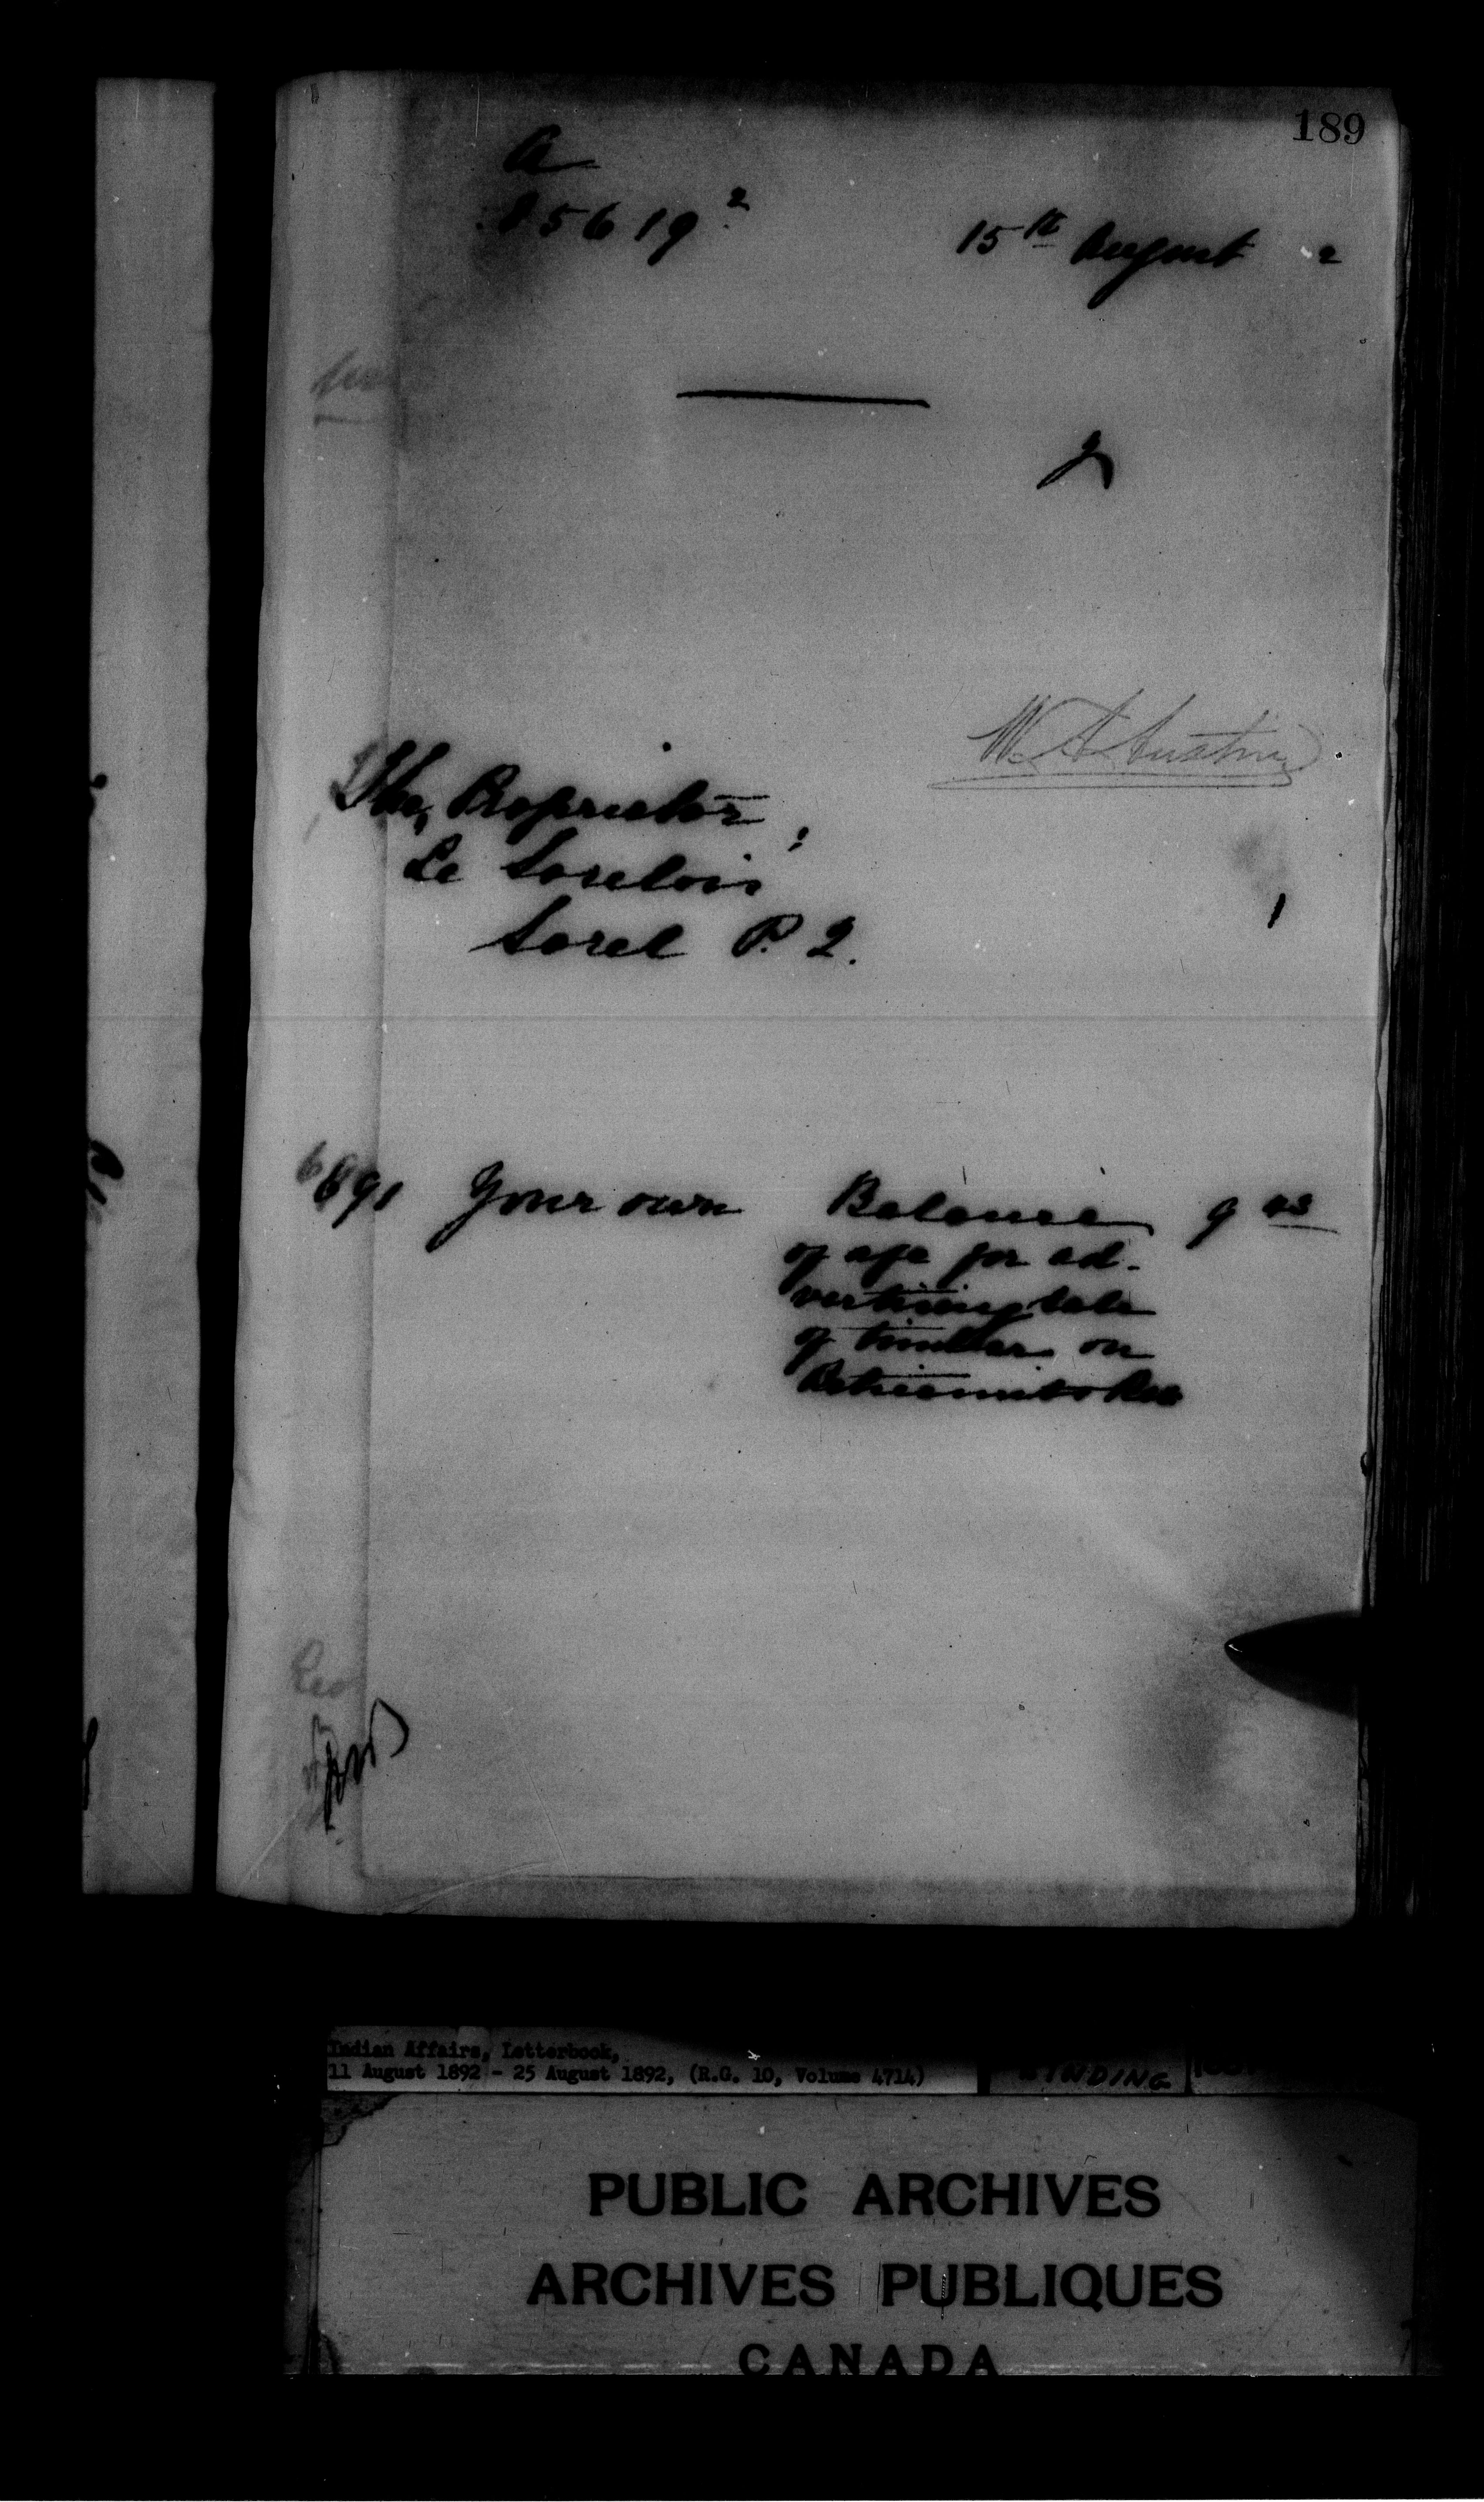 189
A
85619²
15th August 2
W. A. Austin
The Proprietor,
Le Sorelois
Sorel P. Q.
1
691 Your own Balance 9 43
of a/c for ad-
vertising sale
of timber on
Betsiamits Res
Indian Affairs, Letterbook,
11 August 1892 - 25 August 1892, (R.G. 10, Volume 4714)
BINDING
PUBLIC ARCHIVES
ARCHIVES PUBLIQUES
CANADA